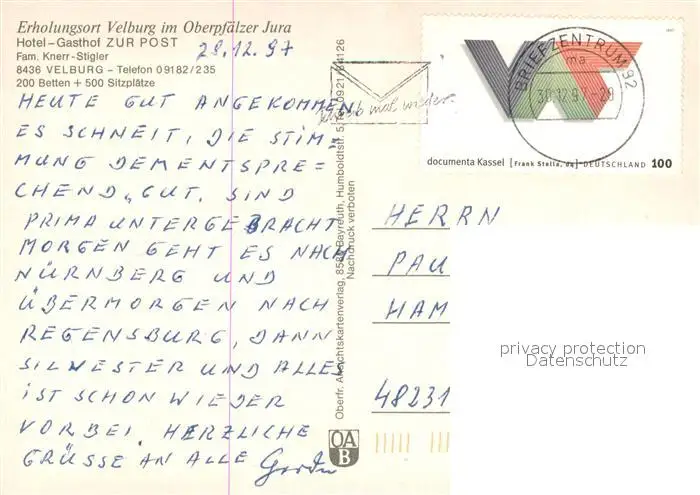 Erholungsort Velburg im Oberpfälzer Jura
Hotel-Gasthof ZUR POST
29.12.97
Fam. Knerr-Stigler
8436 VELBURG - Telefon 09182/235
200 Betten + 500 Sitzplätze
HEUTE GUT ANGEKOMMEN
ES SCHNEIT, DIE STIM=
MUNG DEMENTSPRE=
CHEND "GUT. SIND
PRIMA UNTERGEBRACHT
MORGEN GEHT ES NACH
NÜRNBERG UND
ÜBERMORGEN NACH
REGENSBURG, DANN
SILVESTER UND ALLES
IST SCHON WIEDER
VORBEI. HERZLICHE
GRÜSSE AN ALLE
Oberfr. Ansichtskartenverlag, 858 Bayreuth, Humboldtstr. 5,
Nachdruck verboten
OA
B
mal wieder
BRIEFZENTRUM 92
ma
30.12.97-20
documenta Kassel [Frank Stella, DEUTSCHLAND 100
1997
HERRN
PAU
HAM
48231
privacy protection
Datenschutz